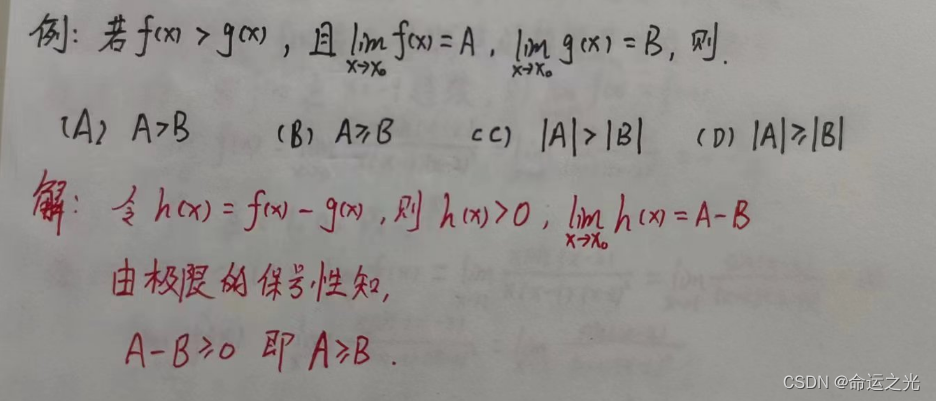 例: 若 f(x) > g(x), 且 lim x→x₀ f(x) = A, lim x→x₀ g(x) = B, 则.
(A) A>B (B) A≥B (C) |A|>|B| (D) |A|≥|B|
解: 令 h(x) = f(x) - g(x), 则 h(x)>0, lim x→x₀ h(x) = A-B
由极限的保号性知,
A-B≥0 即 A≥B.
CSDN @命运之光